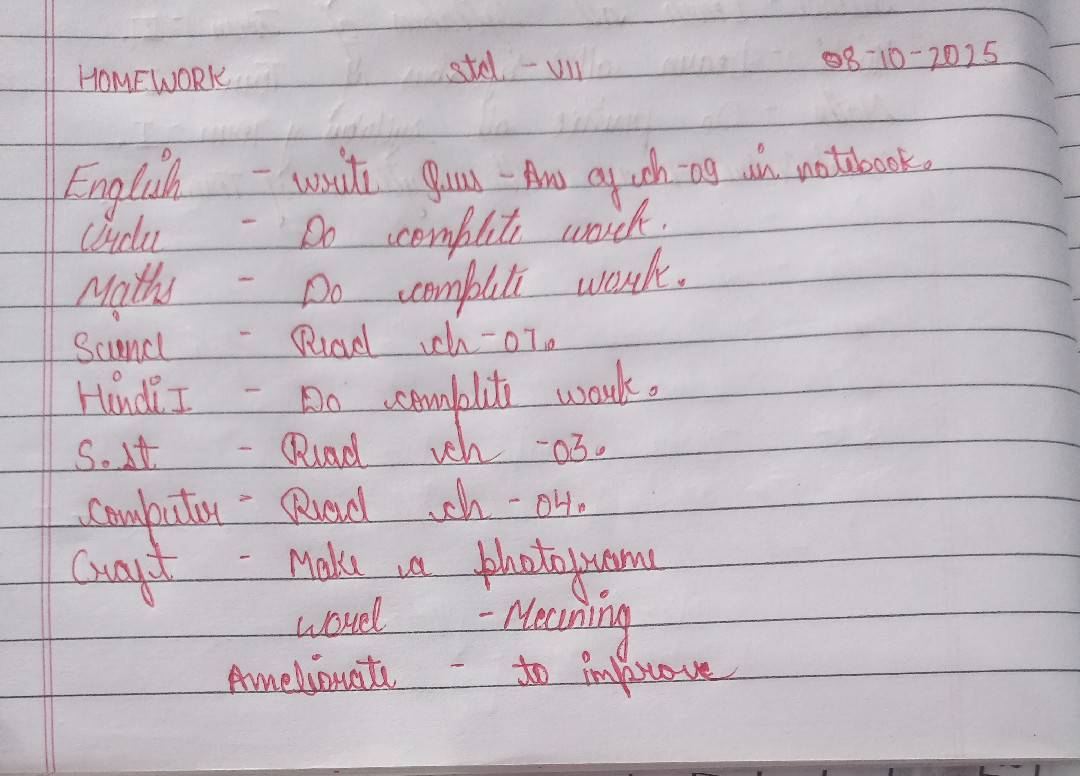 HOMEWORK std. - VII 08-10-2025
English - write Ques - Ans of ch -09 in notebook.
Urdu - Do complete work.
Maths - Do complete work.
Science - Read ch -07.
Hindi I - Do complete work.
S.st - Read ch -03.
Computer - Read ch -04.
Craft - Make a photoframe
Word - Meaning
Ameliorate - to improve